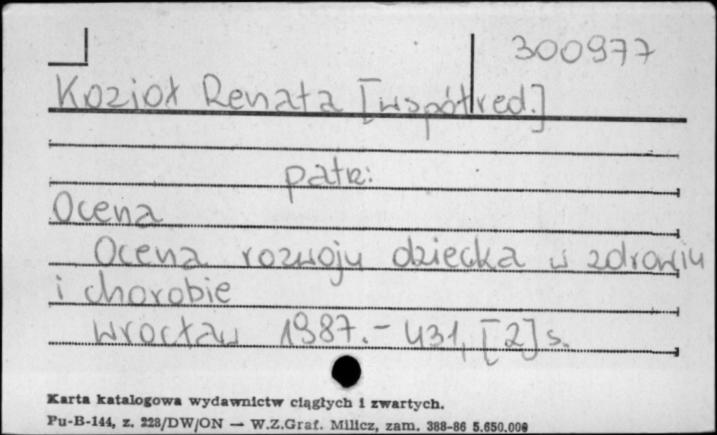 300977
Kozioł Renata [współred.]
patrz:
Ocena
Ocena rozwoju dziecka w zdrowiu
i chorobie
Wrocław 1987.- 431, [2] s.
Karta katalogowa wydawnictw ciągłych i zwartych.
Pu-B-144, z. 228/DW/ON — W.Z.Graf. Milicz, zam. 388-86 5.650.000